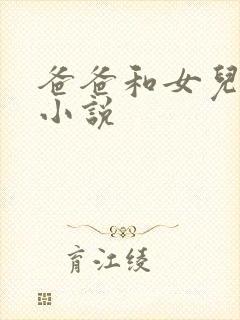 爸爸和女兒
小說
育江綾